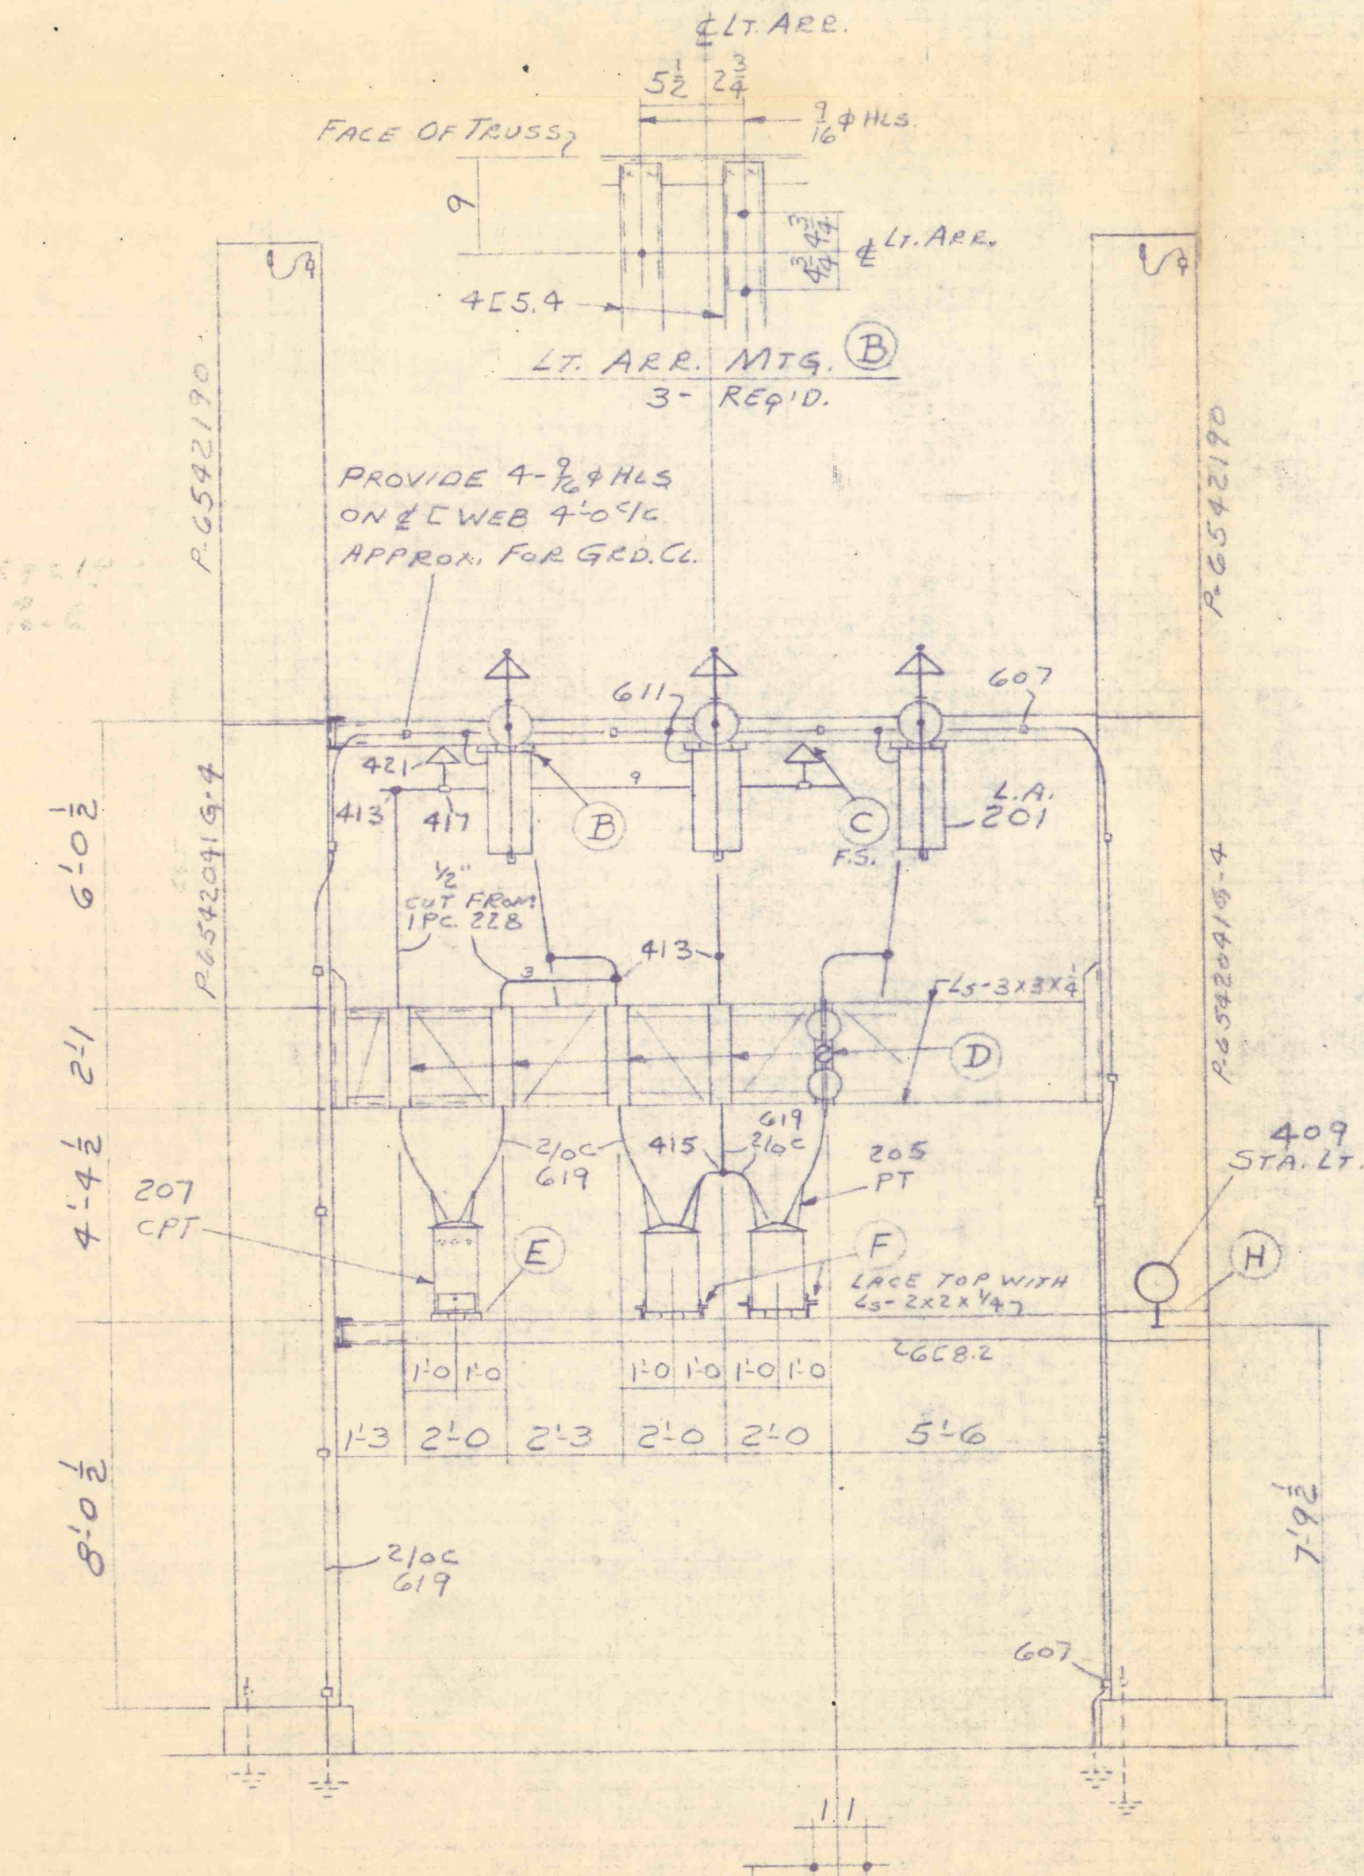 ℄ LT. ARR.
5 1/2 2 3/4
9/16 φ HLS.
FACE OF TRUSS
9
4 3/4 4 3/4
℄ LT. ARR.
4[5.4
LT. ARR. MTG. B
3 - REQ'D.
P-6542190
P-6542190
PROVIDE 4-9/16 φ HLS
ON ℄ [ WEB 4'-0 C/C
APPROX. FOR GRD. CL.
611
607
421
9
413
417
B
C
F.S.
L.A.
201
6'-0 1/2
P-6542041G-4
P-6542041G-4
1/2"
CUT FROM
1 PC. 228
3
413
Ls-3x3x1/4
2'-1
D
2/0C
619
415
619
2/0C
205
PT
409
STA. LT.
4'-4 1/2
207
CPT
E
F
H
LACE TOP WITH
Ls-2x2x1/4
6[8.2
1'-0 1'-0 1'-0 1'-0 1'-0 1'-0
1'-3 2'-0 2'-3 2'-0 2'-0 5'-6
8'-0 1/2
7'-9 1/2
2/0C
619
607
1 1